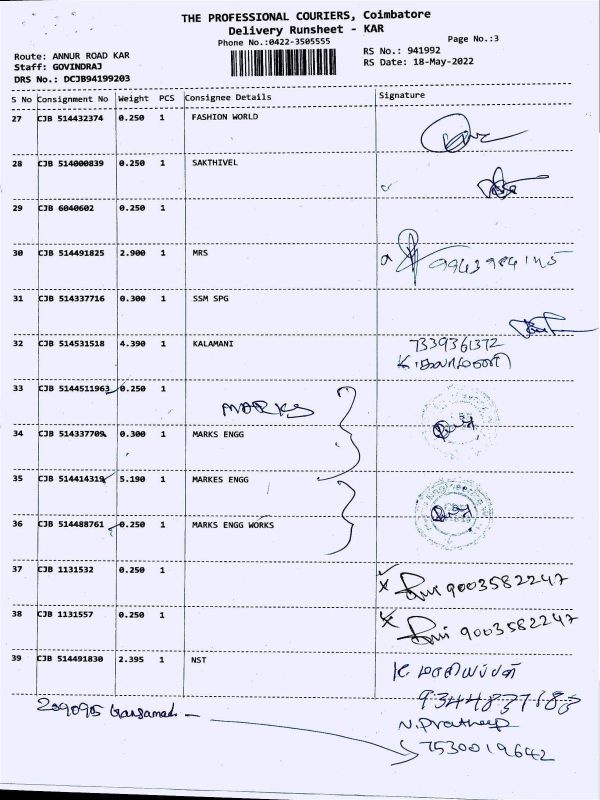 THE PROFESSIONAL COURIERS, Coimbatore
Delivery Runsheet - KAR
Phone No.:0422-3505555
Page No.:3
Route: ANNUR ROAD KAR
Staff: GOVINDRAJ
DRS No.: DCJB94199203
RS No.: 941992
RS Date: 18-May-2022
S No Consignment No Weight PCS Consignee Details Signature
27 CJB 514432374 0.250 1 FASHION WORLD
28 CJB 514000839 0.250 1 SAKTHIVEL
29 CJB 6040602 0.250 1
30 CJB 514491825 2.900 1 MRS
31 CJB 514337716 0.300 1 SSM SPG
32 CJB 514531518 4.390 1 KALAMANI 7339361372
33 CJB 5144511963 0.250 1 MARKS
34 CJB 514337709 0.300 1 MARKS ENGG
35 CJB 514414319 5.190 1 MARKES ENGG
36 CJB 514488761 0.250 1 MARKS ENGG WORKS
37 CJB 1131532 0.250 1 9003582247
38 CJB 1131557 0.250 1 9003582247
39 CJB 514491830 2.395 1 NST
2090905
N. Pratheep
7530019642